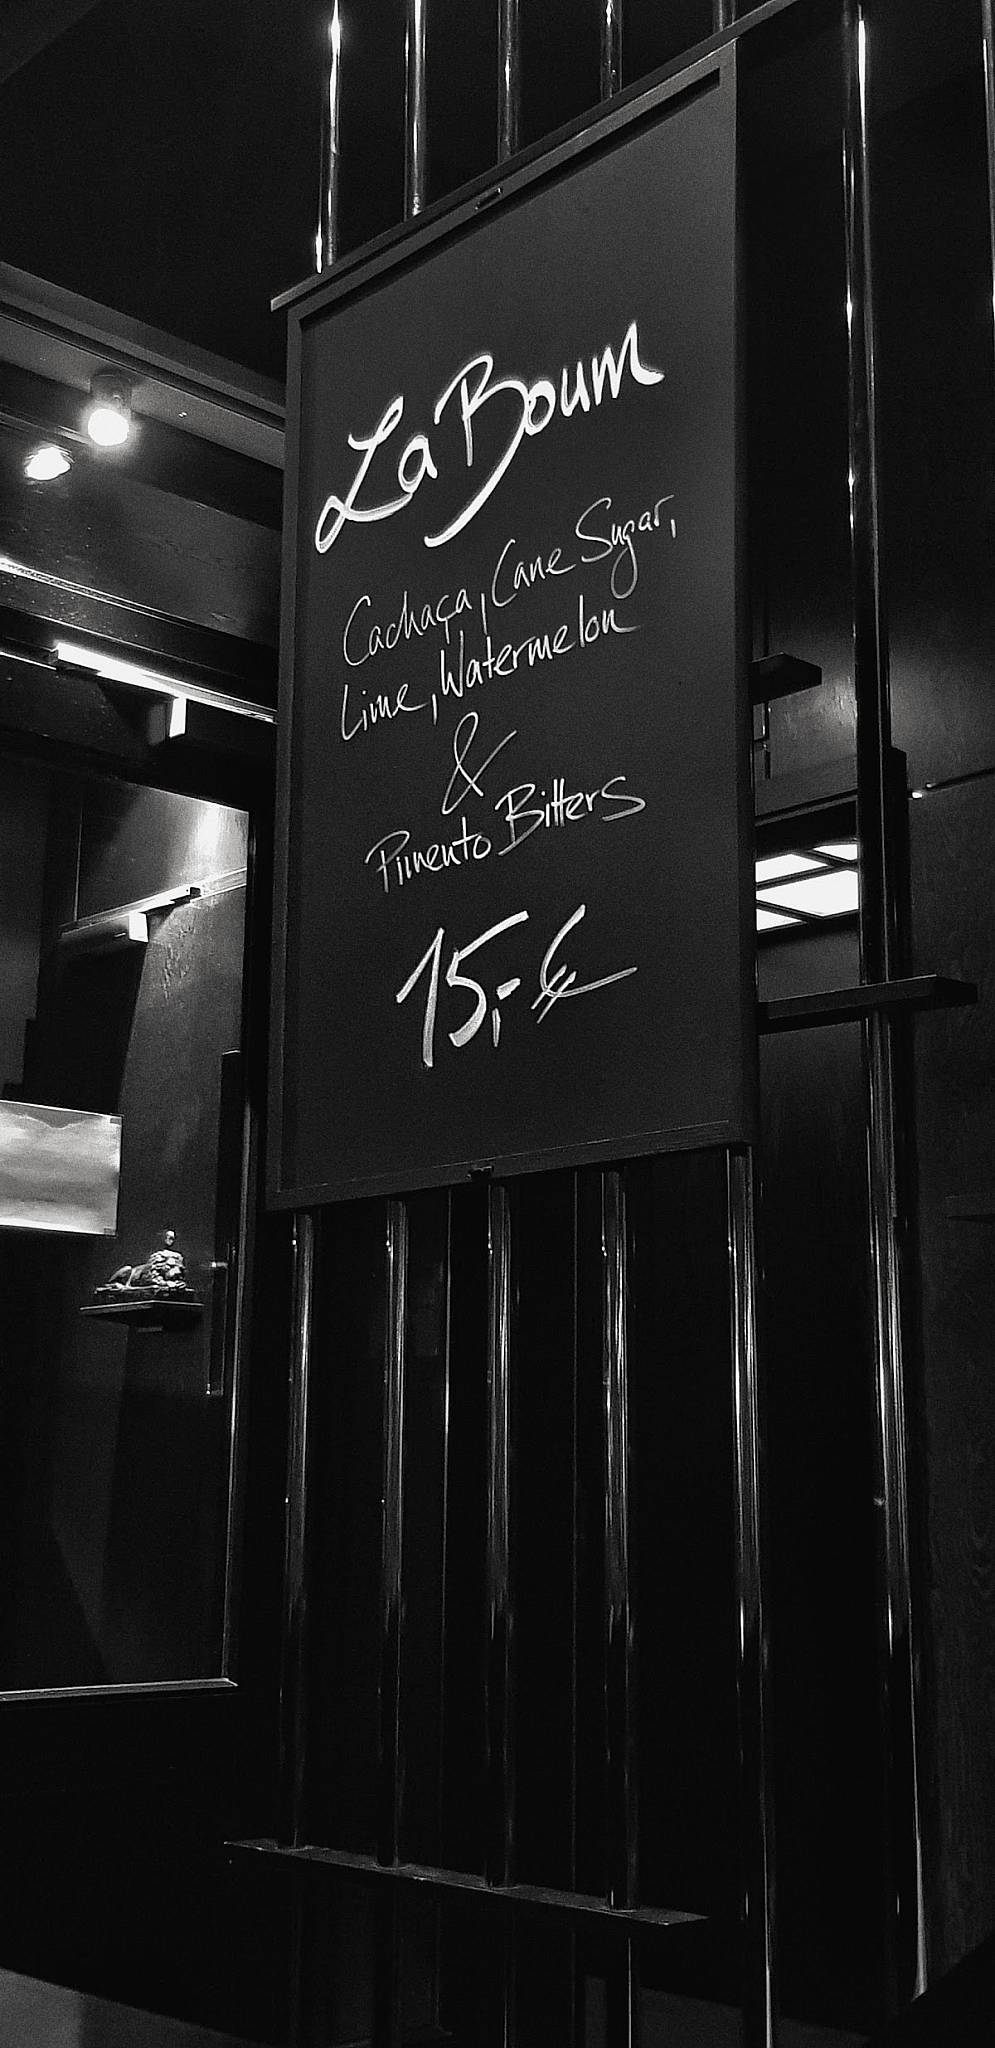 La Boum
Cachaça, Cane Sugar,
Lime, Watermelon
&
Pimento Bitters
15,- €